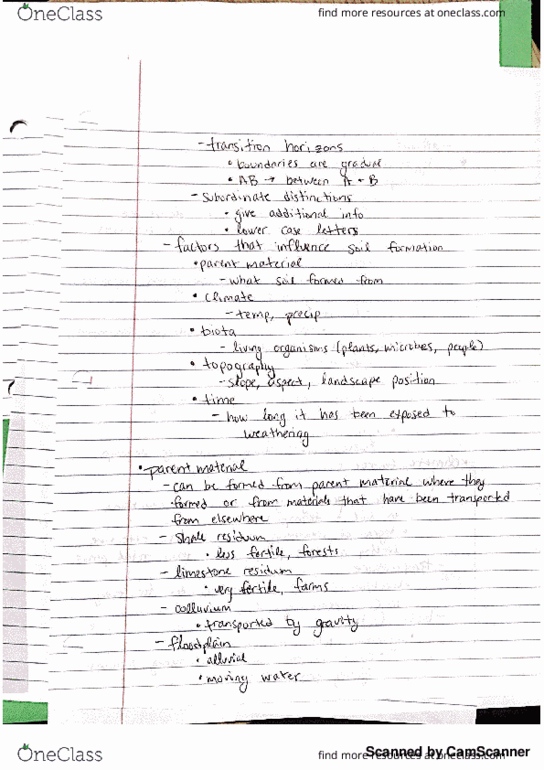 OneClass
find more resources at oneclass.com
- transition horizons
• boundaries are gradual
• AB → between A + B
- subordinate distinctions
• give additional info
• lower case letters
- factors that influence soil formation
• parent material
- what soil formed from
• climate
- temp, precip
• biota
- living organisms (plants, microbes, people)
• topography
- slope, aspect, landscape position
• time
- how long it has been exposed to
weathering
• parent material
- can be formed from parent material where they
formed or from materials that have been transported
from elsewhere
- shale residuum
• less fertile, forests
- limestone residum
• very fertile, farms
- colluvium
• transported by gravity
- floodplain
• alluvial
• moving water
OneClass
find more resources at oneclass.com
Scanned by CamScanner